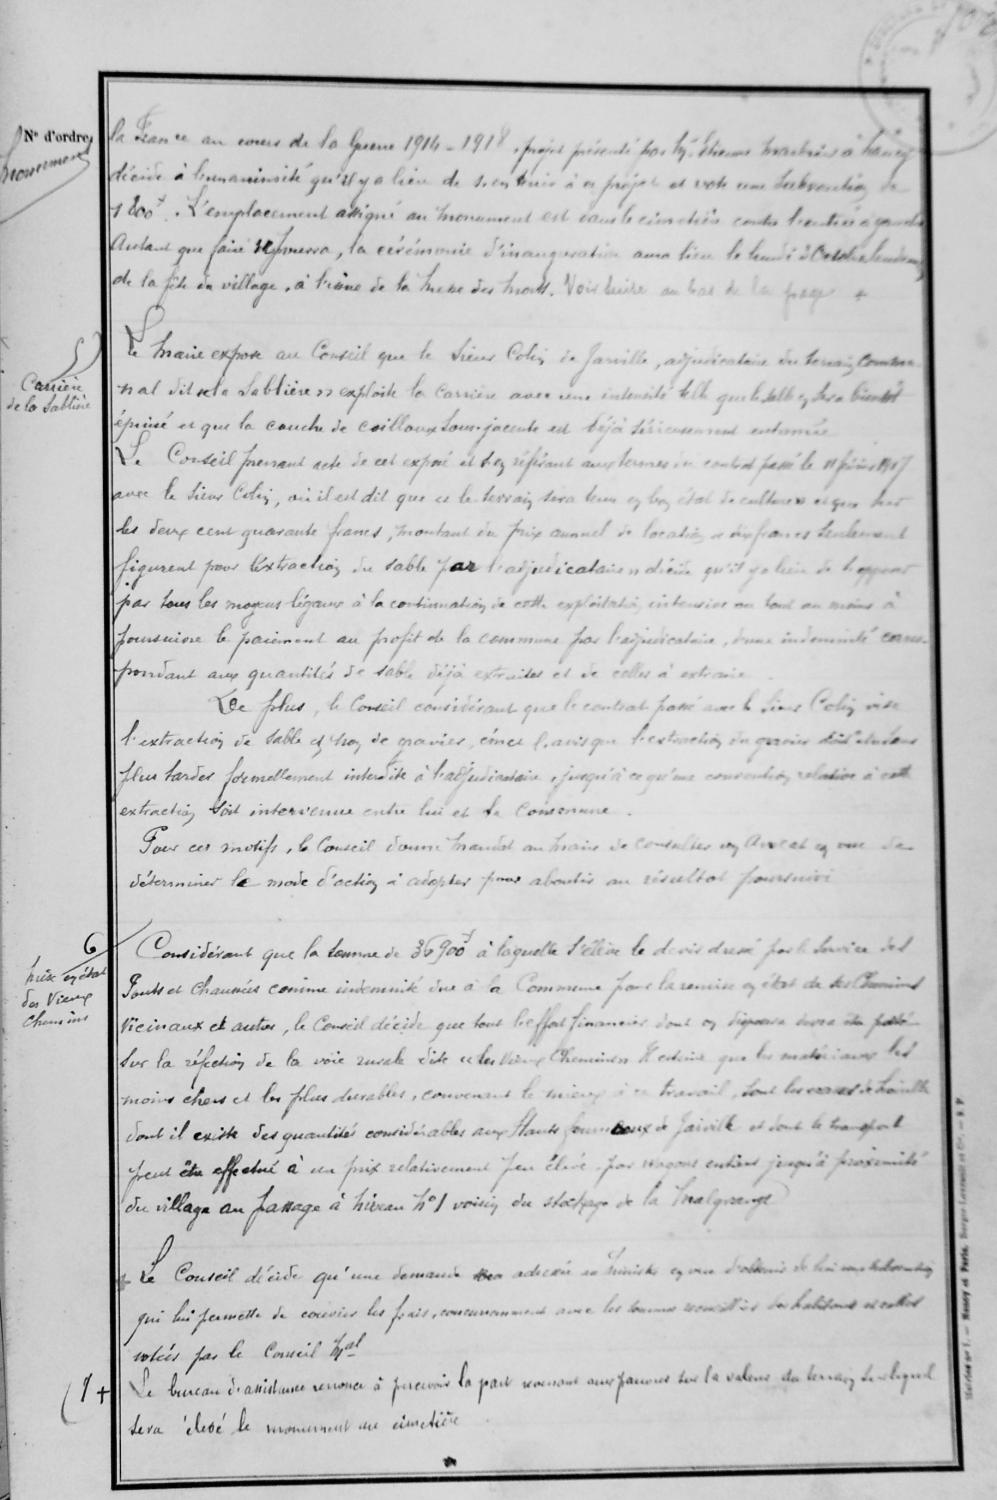 N° d'ordre
Monument
la France au cours de la Guerre 1914-1918, projet présenté par Mr Etienne marbrier à Nancy
décide à l'unanimité qu'il y a lieu de souscrire à ce projet et vote une subvention de
1800f. L'emplacement assigné au monument est dans le cimetière contre l'entrée à gauche
Autant que faire se pourra, la cérémonie d'inauguration aura lieu le lundi 2 Octobre lendemain
de la fête du village, à l'issue de la Messe des Morts. Voir suite au bas de la page +
5
Carrière
de la Sablière
Le Maire expose au Conseil que le Sieur Colin de Jarville, adjudicataire du terrain commu-
nal dit « la Sablière » exploite la carrière avec une intensité telle que le sable en sera bientôt
épuisé et que la couche de cailloux sous-jacente est déjà sérieusement entamée
Le Conseil prenant acte de cet exposé et s'en référant aux termes du contrat passé le 11 février 1917
avec le Sieur Colin, où il est dit que « le terrain sera tenu en bon état de culture » et que sur
les deux cent quarante francs, montant du prix annuel de location « dix francs seulement
figurent pour l'extraction du sable par l'adjudicataire » décide qu'il y a lieu de s'opposer
par tous les moyens légaux à la continuation de cette exploitation intensive ou tout au moins à
poursuivre le paiement au profit de la commune par l'adjudicataire, d'une indemnité corres-
pondant aux quantités de sable déjà extraites et de celles à extraire.
De plus, le Conseil considérant que le contrat passé avec le Sieur Colin vise
l'extraction de sable et non de gravier, émet l'avis que l'extraction du gravier doit
plus tarder formellement interdite à l'adjudicataire, jusqu'à ce qu'une convention relative à cette
extraction soit intervenue entre lui et la Commune.
Pour ces motifs, le Conseil donne mandat au Maire de consulter un Avocat en vue de
déterminer le mode d'action à adopter pour aboutir au résultat poursuivi
6
Mise en état
des Vieux
Chemins
Considérant que la somme de 36900f à laquelle s'élève le devis dressé par le Service des
Ponts et Chaussées comme indemnité due à la Commune pour la remise en état de ses Chemins
Vicinaux et autres, le Conseil décide que tout l'effort financier dont on dispose devra être porté
sur la réfection de la voie rurale dite « les Vieux Chemins » Il estime que les matériaux les
moins chers et les plus durables, convenant le mieux à ce travail, sont les
dont il existe des quantités considérables aux Hauts fourneaux de Jarville et dont le transport
peut être effectué à un prix relativement peu élevé par wagons entiers jusqu'à proximité
du village au passage à niveau N°1 voisin du stockage de la Malgrange
+ Le Conseil décide qu'une demande sera adressée au Ministre en vue d'obtenir de lui une subvention
qui lui permette de couvrir les frais, concurremment avec les sommes recueillies des habitants et celles
votées par le Conseil Mal
(7 + Le bureau d'assistance renonce à percevoir la part revenant aux pauvres sur la valeur du terrain sur lequel
sera élevé le monument au cimetière